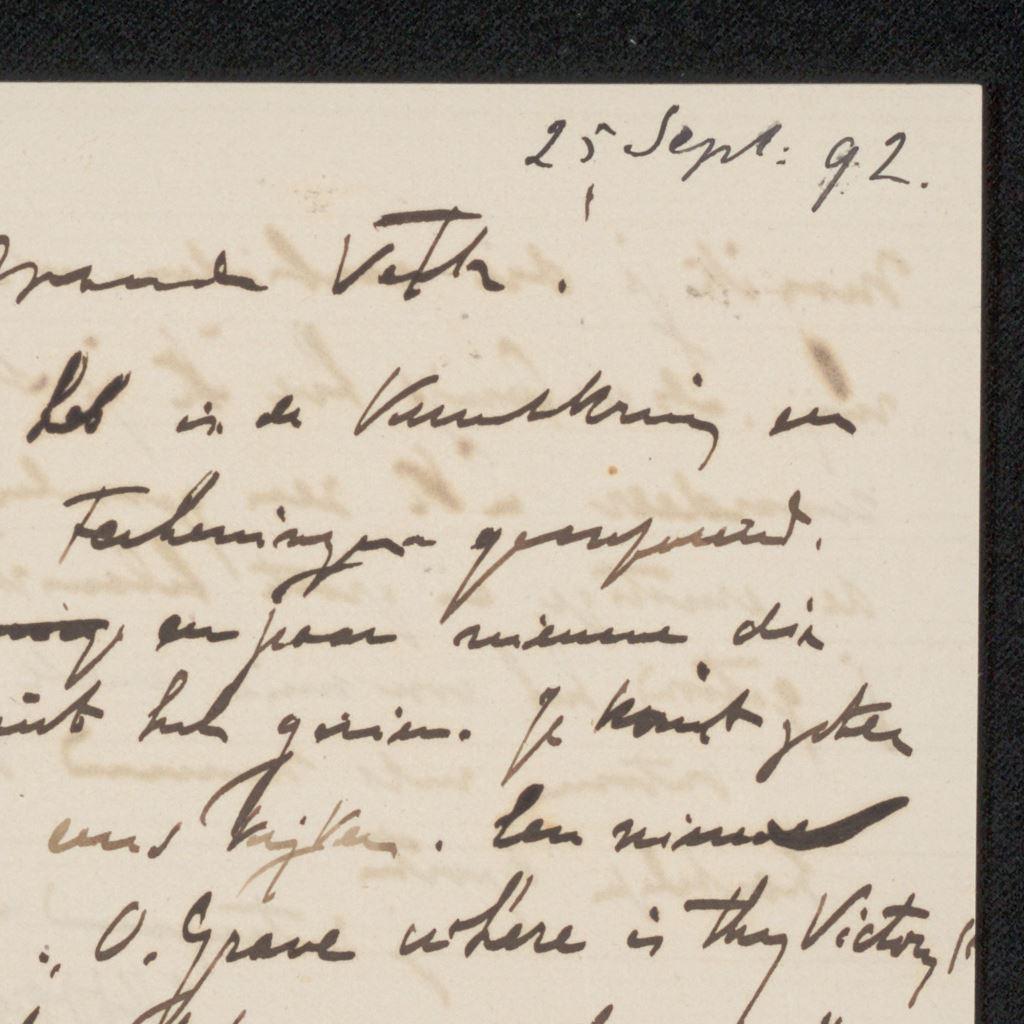 25 Sept: 92.
Amice Veth.
heb in de Kunstkring en
Teekeningen geexposeerd.
een paar nieuwe die
niet heb gezien. Je komt zeker
eens kijken. Een nieuwe
:, O. Grave where is thy Victory